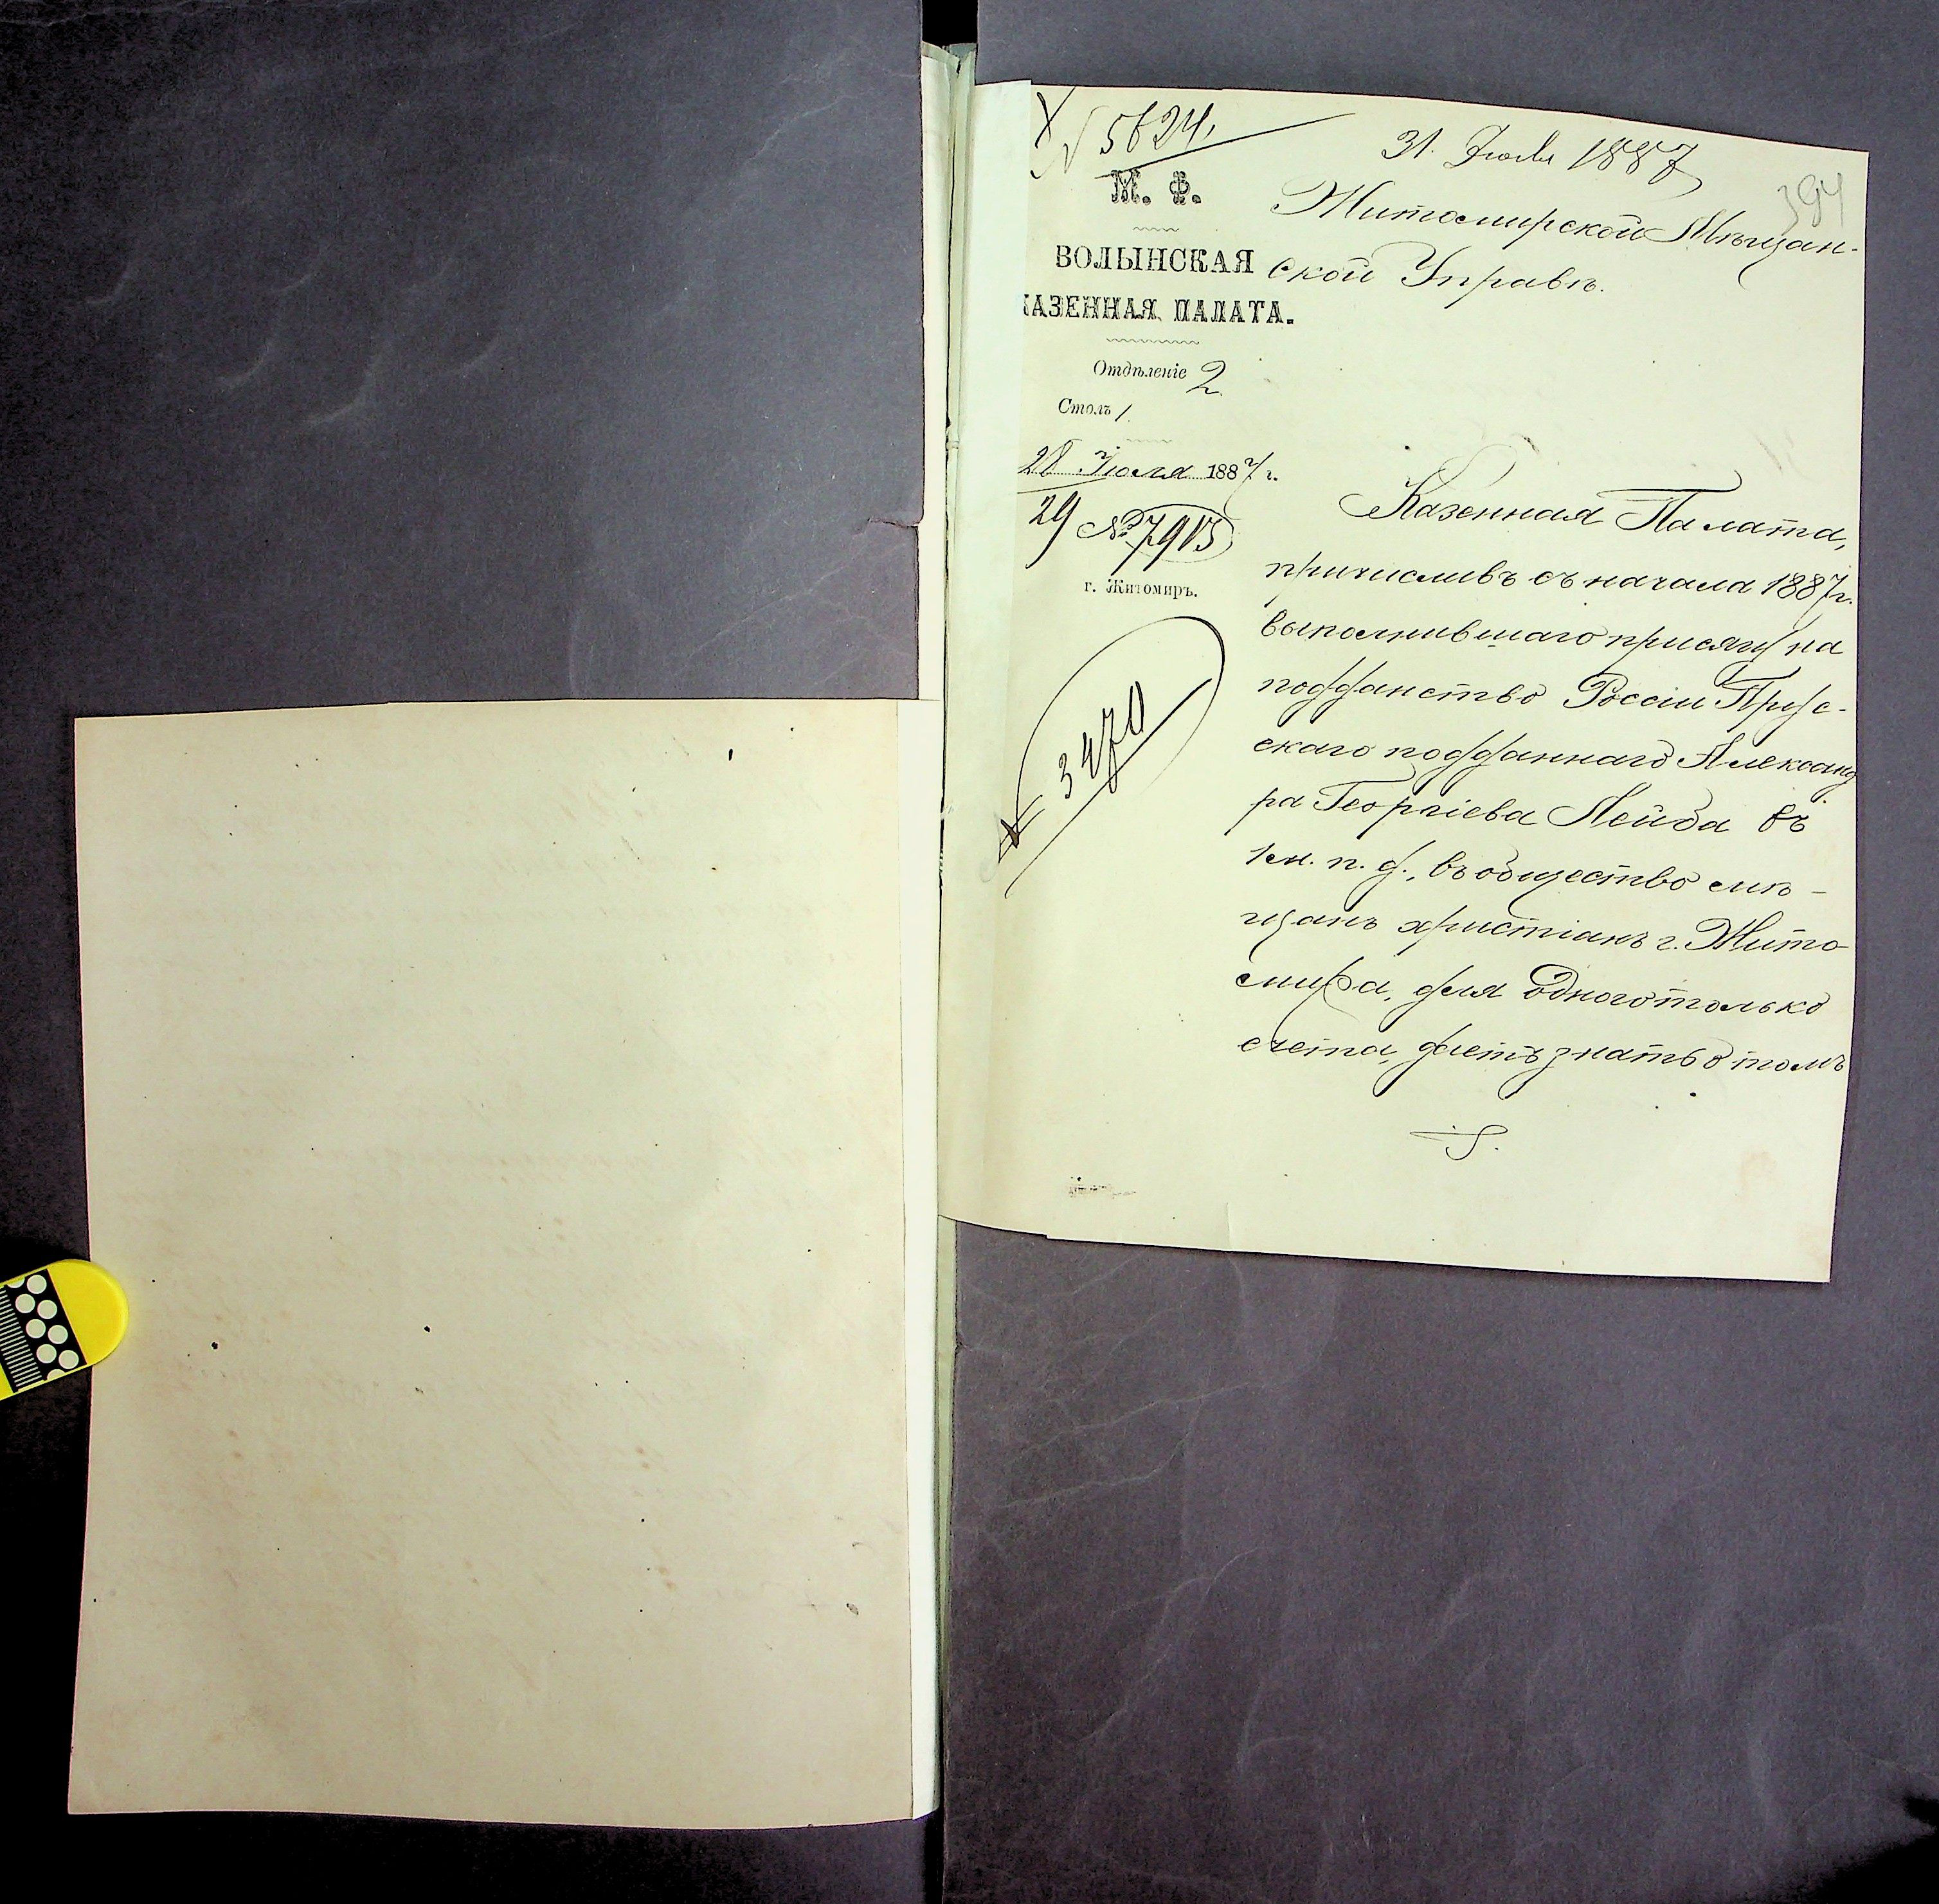 № 5624.
31. Июля 1887
394
М. Ф.
ВОЛЫНСКАЯ
КАЗЕННАЯ ПАЛАТА.
Отдѣленіе 2.
Столъ 1.
28 Июля 1887 г.
29 № 7915
г. Житомиръ.
3470
Житомирской Мѣщан-
ской Управѣ.
Казенная Палата,
причисливъ съ начала 1887 г.
выполнившаго присягу на
подданство Россіи Прус-
скаго подданнаго Александ
ра Георгіева Лейба въ
1 ч. п. д., въ общество мѣ-
щанъ христіанъ г. Жито-
мира, для одного только
счета, даетъ знать о томъ